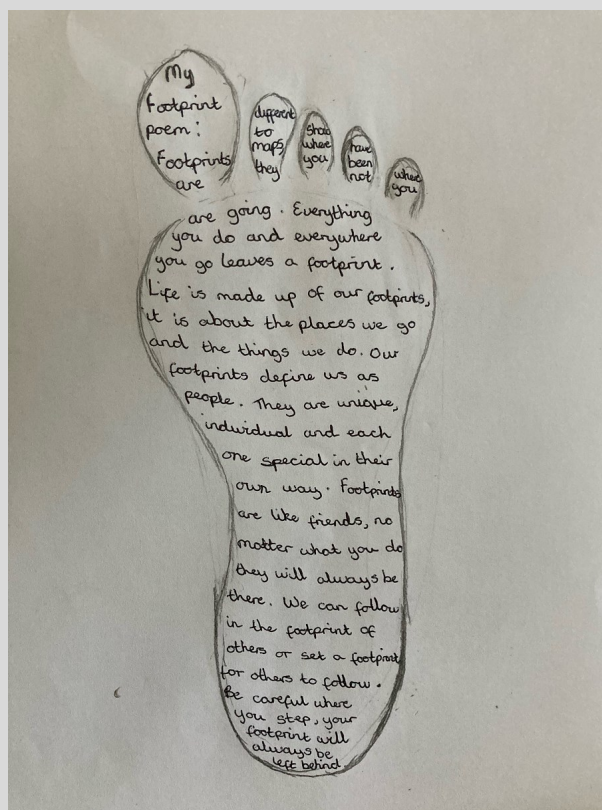 My
footprint
poem:
Footprints
are
different
to
maps,
they
show
where
you
have
been
not
where
you
are going. Everything
you do and everywhere
you go leaves a footprint.
Life is made up of our footprints,
it is about the places we go
and the things we do. Our
footprints define us as
people. They are unique,
individual and each
one special in their
own way. Footprints
are like friends, no
matter what you do
they will always be
there. We can follow
in the footprint of
others or set a footprint
for others to follow.
Be careful where
you step, your
footprint will
always be
left behind.